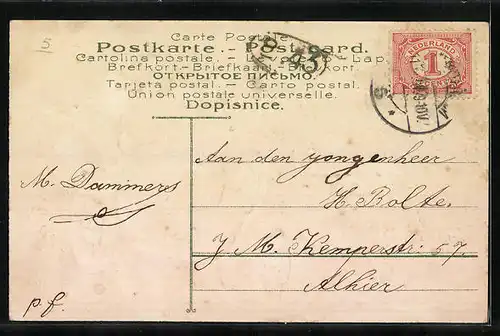 5
Carte Postale.
Postkarte. - Post Card.
Cartolina postale. - Lap.
Brefkort.-Briefkaart.
ОТКРЫТОЕ ПИСЬМО.
Tarjeta postal. - Carto postal.
Union postale universelle.
Dopisnice.
843
NEDERLAND
1
Aan den jongenheer
M. Dammers
H. Bolte.
J. M. Kemperstr: 57
Alhier
p.f.